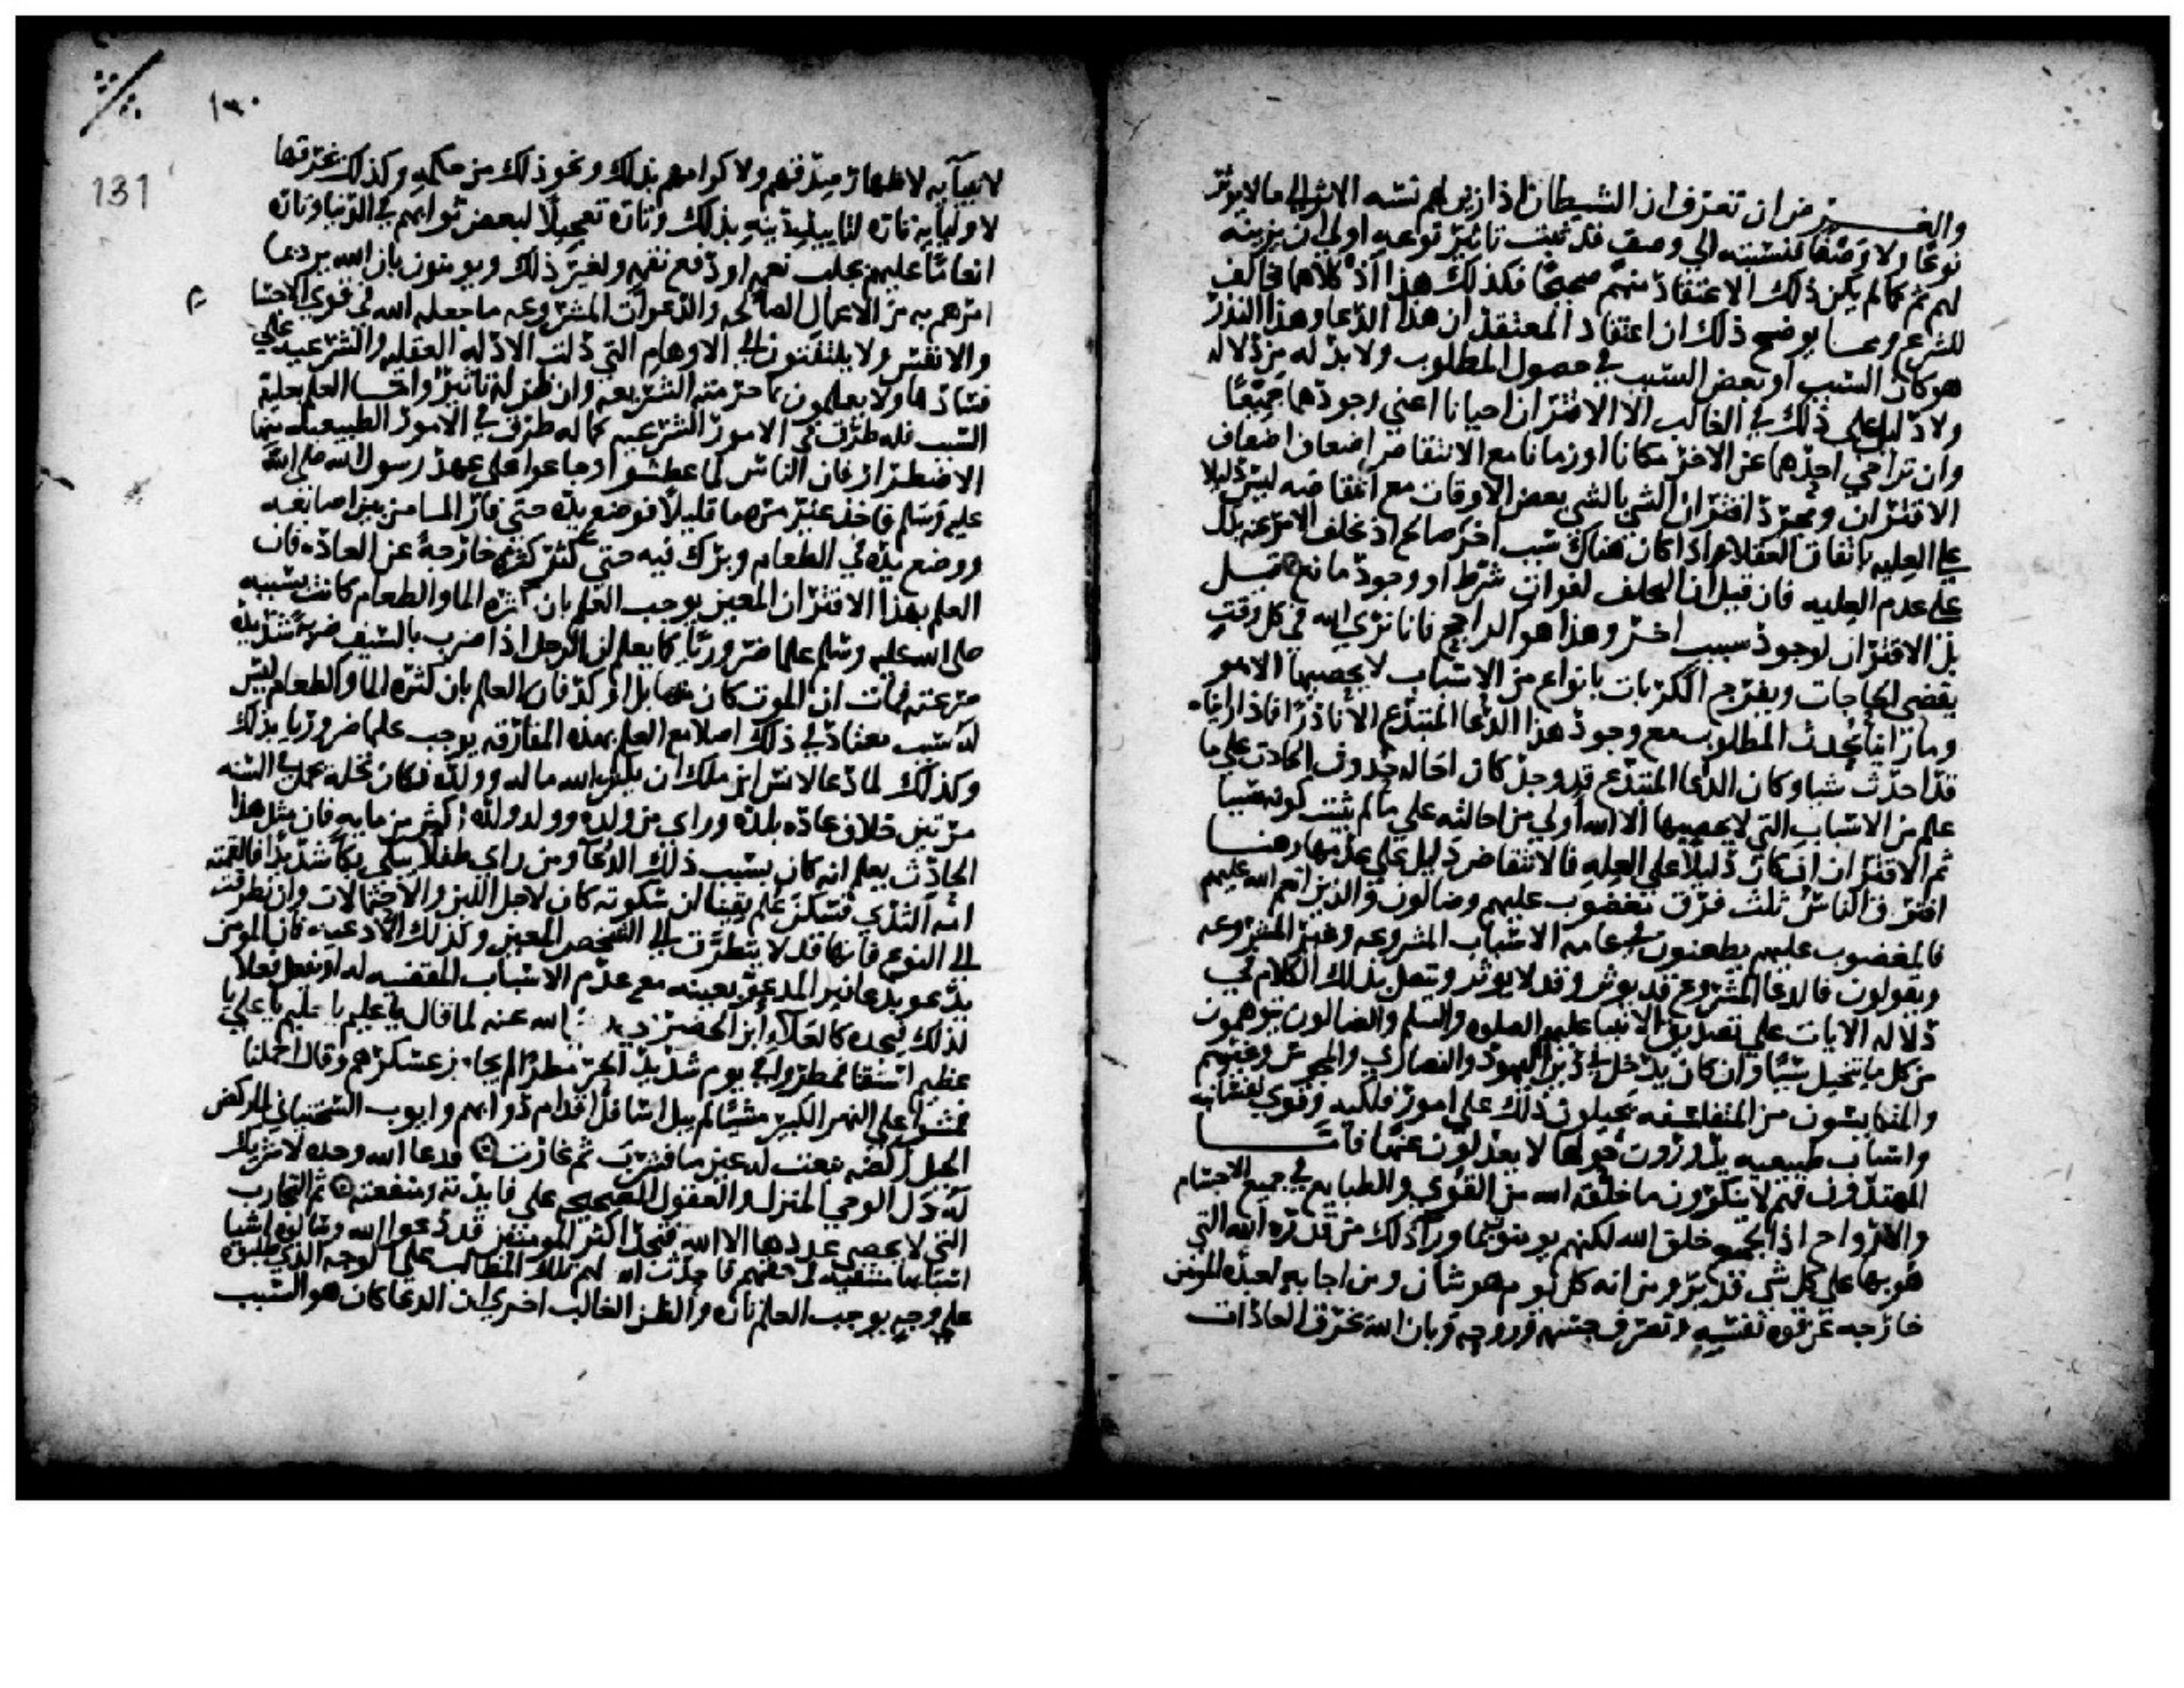 والغرض ان تعرف ان الشيطان اذا زين لهم نسبه الاثر الى ما لا يوثر
نوعا ولا وصفا فنسبته الى وصف قد ثبت تاثير نوعه اولى ان يزينه
لهم ثم كما لم يكن ذلك الاعتقاد منهم صحيحا فكذلك هذا اذ كلاهما مخالف
للشرع ومما يوضح ذلك ان اعتقاد المعتقد ان هذا الدعا وهذا النذر
هو كان السبب او بعض السبب في حصول المطلوب ولا بد له من دلاله
ولا دليل على ذلك في الغالب الا الاقتران احيانا اعني وجودهما جميعا
وان تراخى احدهما عن الاخر مكانا او زمانا مع الانتقاض اضعاف اضعاف
الاقتران ومجرد اقتران الشي بالشي بعض الاوقات مع انتقاضه ليس دليلا
على العليه باتفاق العقلا اذا كان هناك سبب اخر صالح اذ تخلف الاثر عنه يدل
على عدم العليه فان قيل ان التخلف لفوات شرط او وجود مانع قيل
بل الاقتران لوجود سبب اخر وهذا هو الراجح فانا نرى الله في كل وقت
يقضي الحاجات ويفرج الكربات بانواع من الاسباب لا يحصيها الا هو
وما راينا يحدث المطلوب مع وجود هذا الدعا المبتدع الا نادرا فاذا رايناه
قد احدث شيا وكان الدعا المبتدع قد وجد كان احاله حدوث الحادث على ما
علم من الاسباب التي لا يحصيها الا الله اولى من احالته على ما لم يثبت كونه سببا
ثم الاقتران ان كان دليلا على العله فالانتقاض دليل على عدمها وهنا
افترق الناس ثلث فرق مغضوب عليهم وضالون والذين انعم الله عليهم
فالمغضوب عليهم يطعنون في عامه الاسباب المشروعه وغير المشروعه
ويقولون فالدعا المشروع قد يوثر وقد لا يوثر ويتصل بذلك الكلام في
دلاله الايات على تصديق الانبيا عليهم الصلوه والسلم والضالون يتوهمون
من كل ما يتخيل سببا وان كان يدخل في دين اليهود والنصارى والمجوس وغيرهم
والمتكايسون من المتفلسفه يحيلون ذلك على امور فلكيه وقوى نفسانيه
واسباب طبيعيه يدورون حولها لا يعدلون عنها فاما
المهتدون فهم لا ينكرون ما خلقه الله من القوى والطبايع في جميع الاجسام
والارواح اذ الجميع خلق الله لكنهم يومنون بما ورا ذلك من قدره الله التي
هو بها على كل شي قدير ومن انه كل يوم هو شان ومن اجابه لعبده المومن
خارجه عن قوه نفسه وتصرف جسمه وروحه وبان الله يخرق العادات
١٣٠
131
لانبيايه لاظهار صدقهم ولاكرامهم بذلك ونحو ذلك من حكمه وكذلك يخرقها
لاوليايه تاره لتاييد دينه بذلك وتاره تعجيلا لبعض ثوابهم في الدنيا وتاره
انعاما عليهم بجلب نعمه او دفع نقمه ولغير ذلك ويومنون بان الله يرد بما
امرهم به من الاعمال الصالحه والدعوات المشروعه ما جعله الله في قوى الاجسام
والانفس ولا يلتفتون الى الاوهام التي دلت الادله العقليه والشرعيه على
فسادها ولا يعملون بما حرمته الشريعه وان ظن له تاثيرا واما العلم بعليه
السبب فله طرق في الامور الشرعيه كما له طرق في الامور الطبيعيه منها
الاضطرار فان الناس لما عطشوا وجاعوا على عهد رسول الله صلى الله
عليه وسلم فاخذ غير مره ما قليلا فوضع يده حتى فار الما من بين اصابعه
ووضع يده في الطعام وبرك فيه حتى كثر كثره خارجه عن العاده فان
العلم بهذا الاقتران المعين يوجب العلم بان كثره الما والطعام كانت بسببه
صلى الله عليه وسلم علما ضروريا كما يعلم ان الرجل اذا ضرب بالسيف ضربه شديده
صرعته فمات ان الموت كان منها بل اوكد فان العلم بان كثره الما والطعام ليس
له سبب معتاد في ذلك اصلا مع العلم بهذه المقارنه يوجب علما ضروريا بذلك
وكذلك لما دعا لانس ابن ملك ان يكثر الله ماله وولده فكان نخله تحمل في السنه
مرتين خلاف عاده بلده وراى من ولده وولد ولده اكثر من مايه فان مثل هذا
الحادث يعلم انه كان بسبب ذلك الدعا ومن راى طفلا يبكي بكا شديدا فالقمته
امه الثدي فسكن علم يقينا ان سكوته كان لاجل اللبن والاحتمالات وان تطرقت
الى النوع فانها قد لا يتطرق الى الشخص المعين وكذلك الادعيه فان المومن
يدعو بدعا فيرى المدعو بعينه مع عدم الاسباب المقتضيه له او يفعل فعلا
لذلك فيجده كالعلا ابن الحضرمي رضي الله عنه لما قال يا عليم يا حليم يا علي يا
عظيم اسقنا فمطروا في يوم شديد الحر مطرا لم يجاوز عسكرهم وقال احملنا
فمشوا على النهر الكبير مشيا لم يبل اسافل اقدام دوابهم وايوب السختياني لما ركض
الجبل ركضه نبعت له عين ما فشرب ثم غارت فدعا الله وحده لا شريك
له دل الوحي المنزل والعقول الصحيحه على فايدته ومنفعته ثم التجارب
التي لا يحصي عددها الا الله فتجد اكثر المومنين قد دعوا الله وسالوه اشيا
اسبابها منتفيه في حقهم فاحدث الله لهم تلك المطالب على الوجه الذي طلبوه
على وجه يوجب العلم تاره والظن الغالب اخرى ان الدعا كان هو السبب